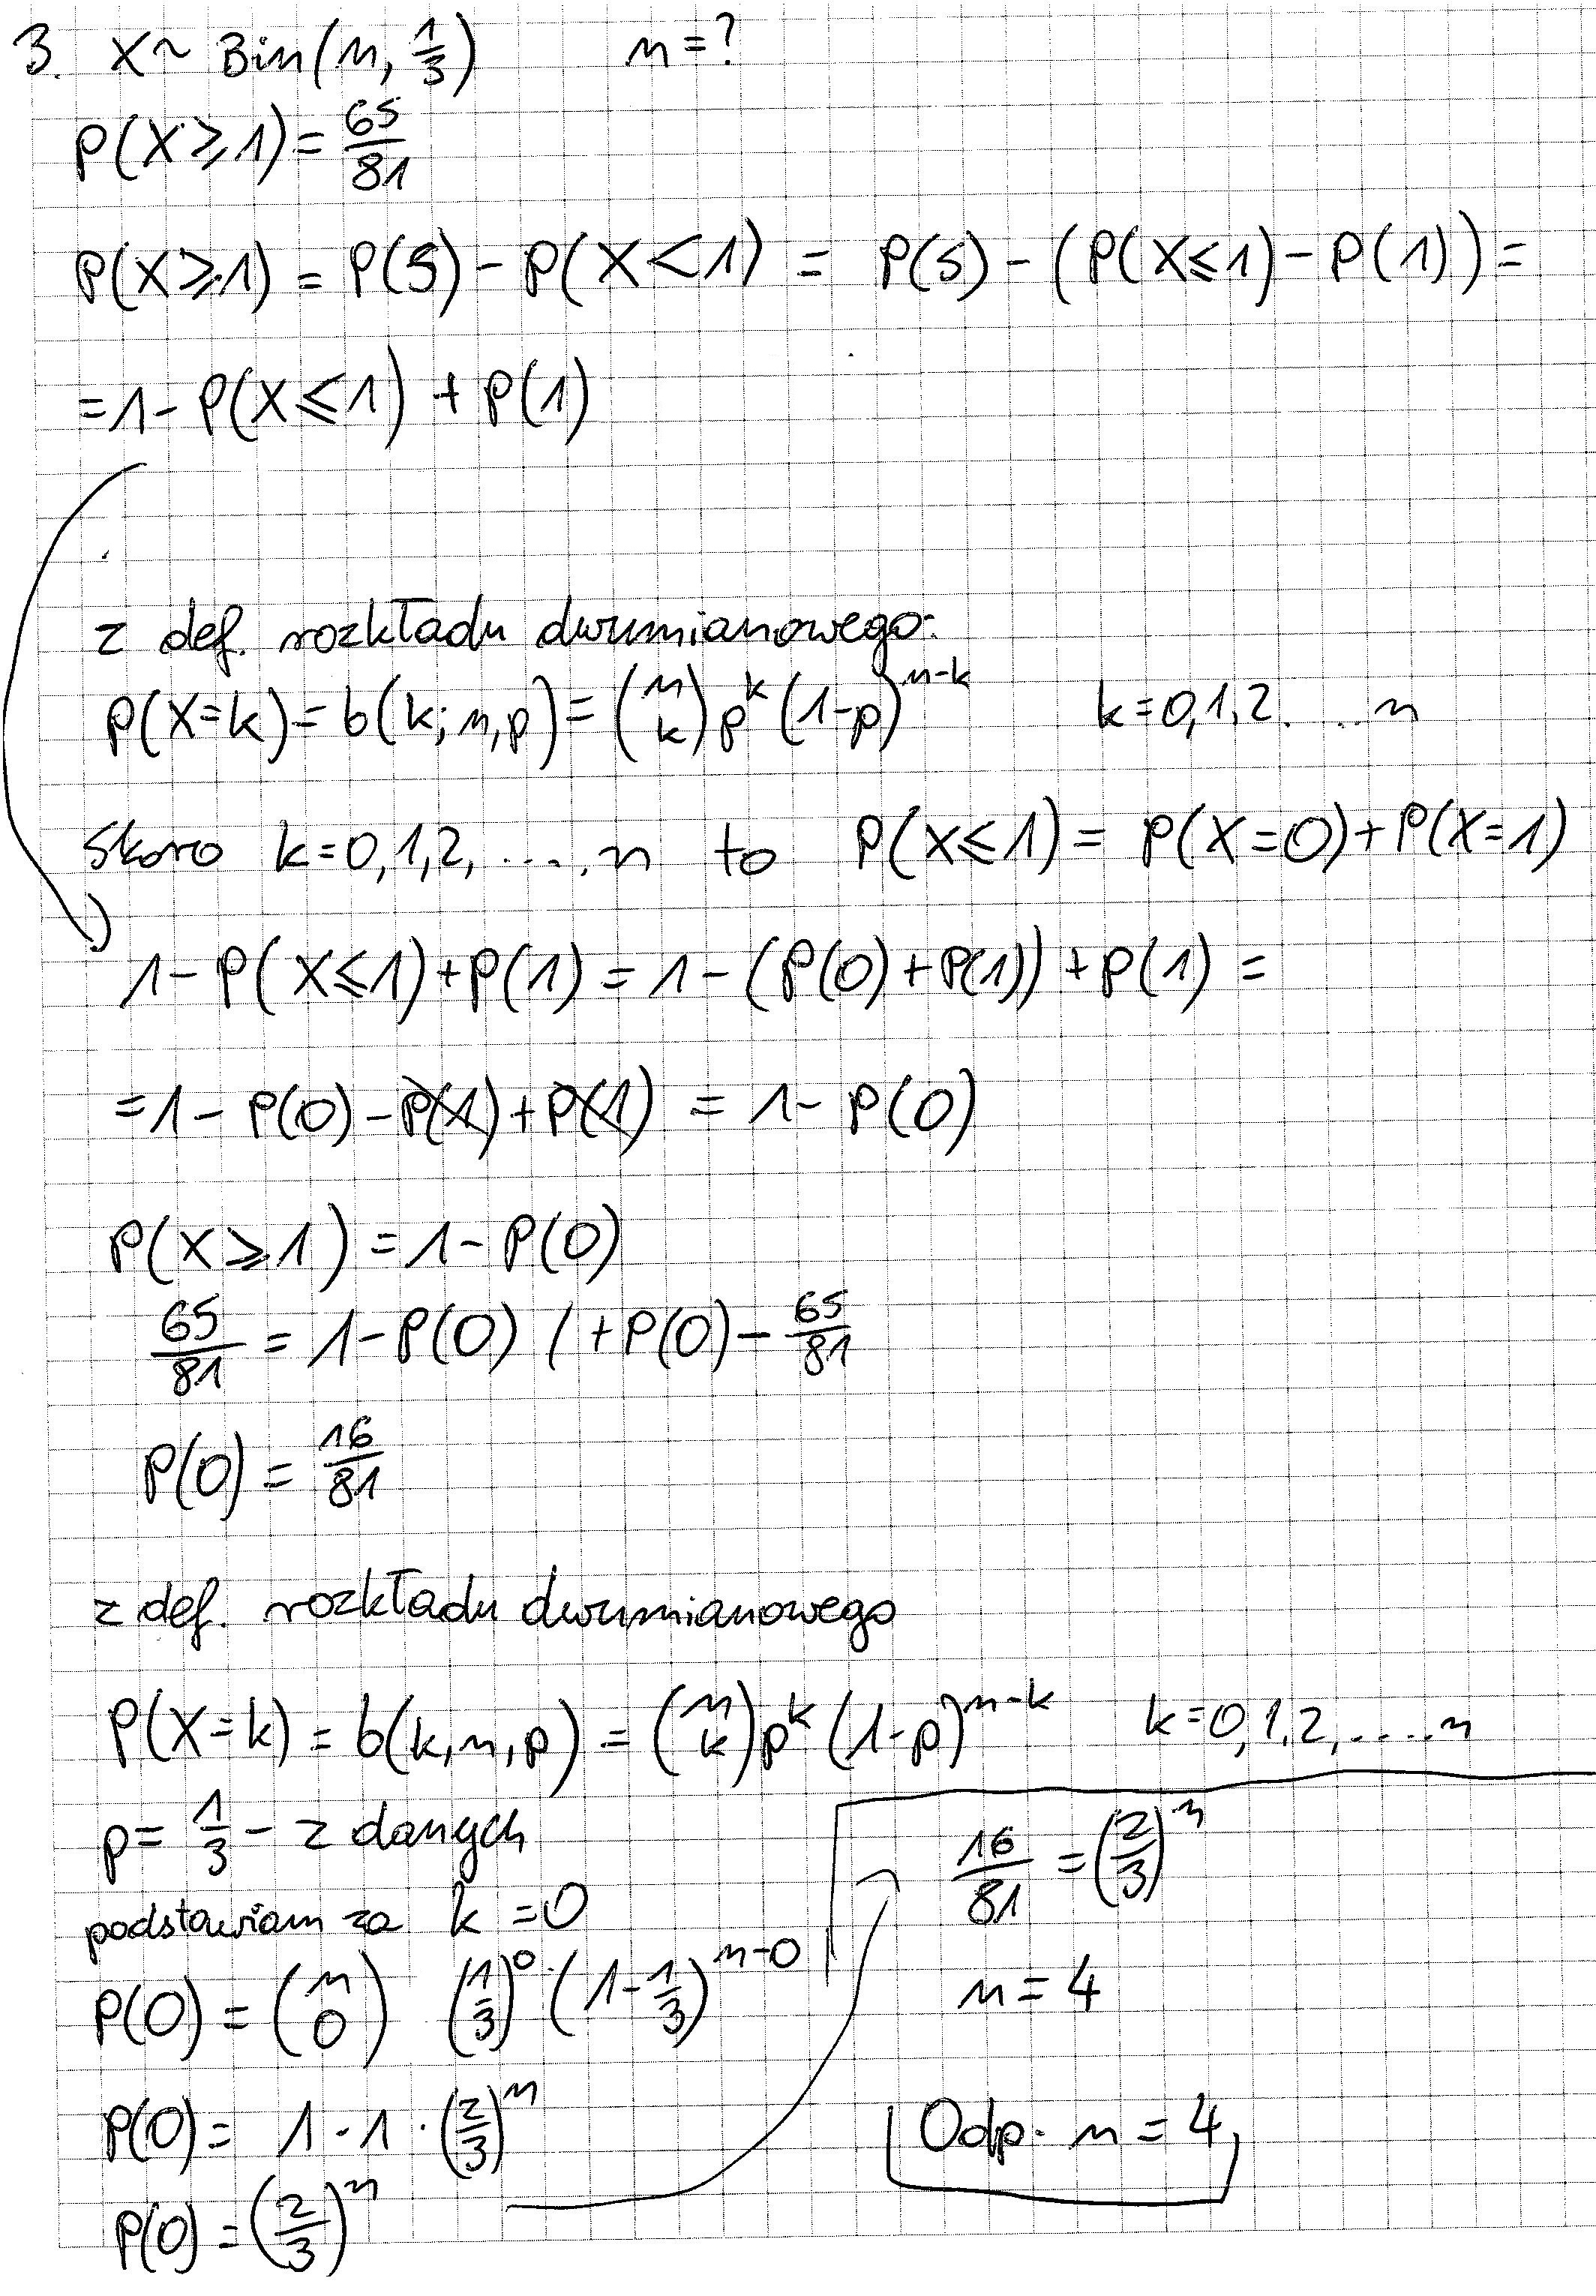 3. X ~ Bin(n, 1/3) n = ?
P(X ≥ 1) = 65/81
P(X ≥ 1) = P(S) - P(X < 1) = P(S) - (P(X ≤ 1) - P(1)) =
= 1 - P(X ≤ 1) + P(1)
z def. rozkładu dwumianowego:
P(X=k) = b(k; n, p) = (n k) p^k (1-p)^(n-k) k = 0,1,2....n
Skoro k=0,1,2,...., n to P(X ≤ 1) = P(X=0) + P(X=1)
1 - P(X ≤ 1) + P(1) = 1 - (P(0) + P(1)) + P(1) =
= 1 - P(0) - P(1) + P(1) = 1 - P(0)
P(X ≥ 1) = 1 - P(0)
65/81 = 1 - P(0) / + P(0) - 65/81
P(0) = 16/81
z def. rozkładu dwumianowego
P(X=k) = b(k, n, p) = (n k) p^k (1-p)^(n-k) k=0,1,2,.....n
p = 1/3 - z danych
podstawiam za k = 0
P(0) = (n 0) (1/3)^0 · (1 - 1/3)^(n-0)
P(0) = 1 · 1 · (2/3)^n
P(0) = (2/3)^n
16/81 = (2/3)^n
n = 4
Odp. n = 4